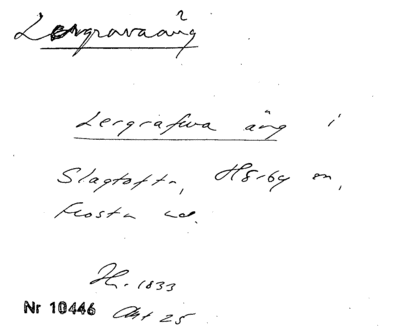 Lergravaäng
Lergrafwa äng i
Slagtofta, Hörby sn,
Frosta hd.
H. 1833
Nr 10446 Akt 25